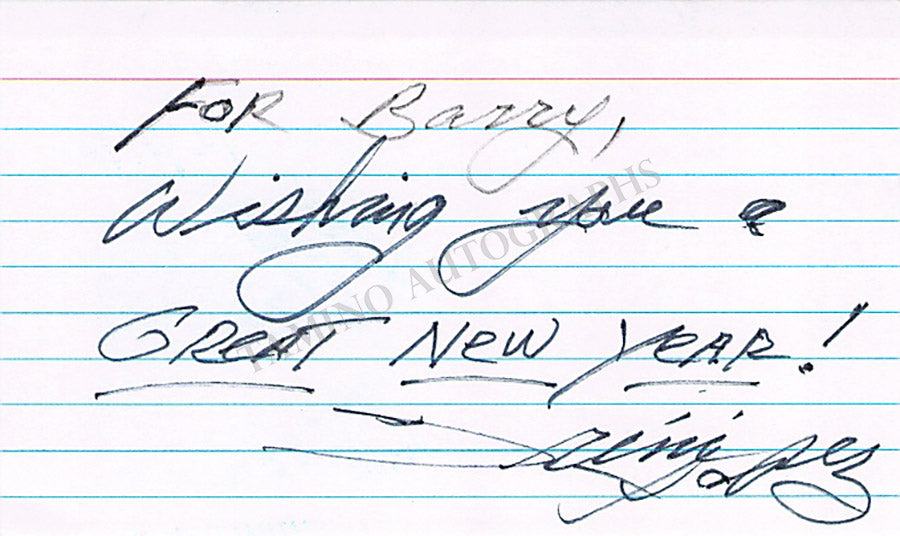 FOR Barry,
Wishing you a
GREAT NEW YEAR!
Trini Lopez
TAMINO AUTOGRAPHS